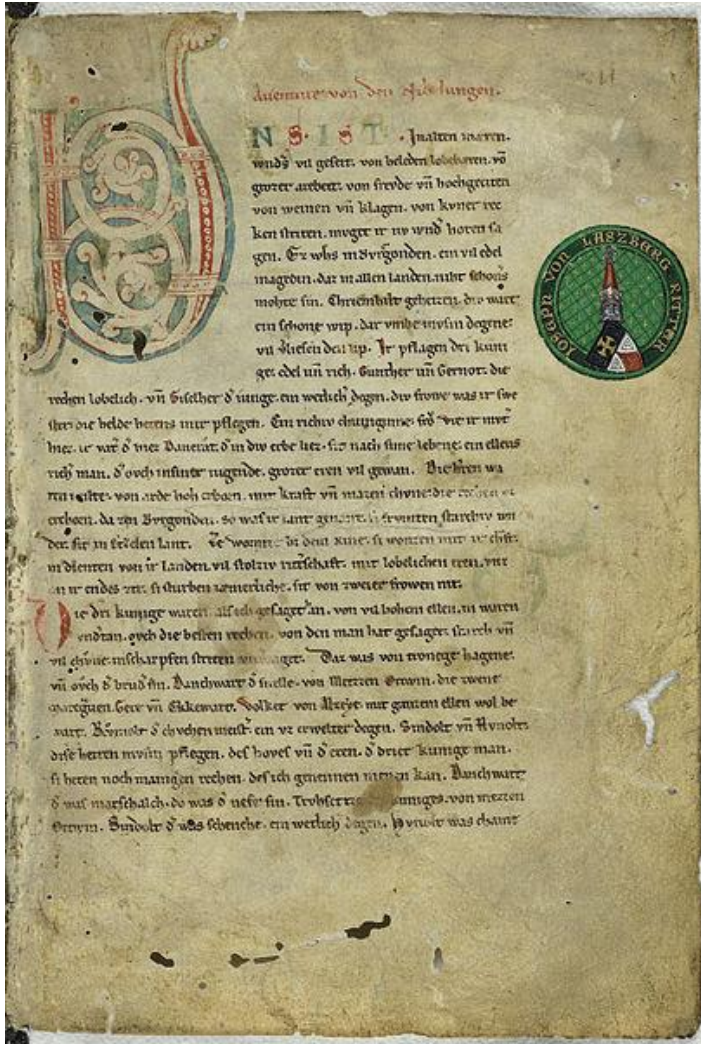 Auenture von den Nibelungen.
VNS IST. In alten mæren.
wnd͛s vil geseit. von heleden lobebæren. vō
grozer arebeit. von frevde vn̄ hochgeciten
von weinen vn̄ klagen. von kvner rec
ken striten. mvget ir nv wnd͛ horen sa
gen. Ez whs in Bvrgonden. ein vil edel
magedin. daz in allen landen. niht schon͛s
mohte sin. Chriemhilt geheizen. div wart
ein schone wip. dar vmbe mvsin degene.
vil vliesen den lip. Ir pflagen dri kuni
ge. edel vn̄ rich. Gunther vn̄ Gernot. die
rechen lobelich. vn̄ Giselher d͛ iunge. ein wetlich degen. div frowe was ir swe
ster. die helde hetens inir pflegen. Ein richiv chuniginne. fro Vte ir mvt͛
hiez. ir vat͛ d͛ hiez Dancrat. d͛ in div erbe liez. sit nach sime lebene. ein ellens
rich man. d͛ ovch in siner iugende. grozer eren vil gewan. Die h͛ren wa
ren milte. von arde hoh erborn. mit kraft vn̄ mazen chvne. die rechen
erchorn. da zen Bvrgonden. so was ir lant genant. si frvmten starchiv wn
der. sit in Etzelen lant. Ze wormze bi dem Rine. si wonten mit ir chr̄ft.
in dienten von ir landen. vil stolziv ritt͛schaft. mit lobelichen eren. vnz
an ir endes zit. si sturben iæmerliche. sit von zweier frowen nit.
Die dri kunige waren. als ich gesaget han. von vil hohem ellen. in waren
vndtan. ovch die besten rechen. von den man hat gesaget. starch vn̄
vil chvne. in scharpfen striten vnverzaget. Daz was von tronege hagene.
vn̄ ovch d͛ brud͛ sin. Danchwart d͛ snelle. von Metzzen Ortwin. die zwene
marcgrauen. Gere vn̄ Ekkewart. Volker von Alzeye. mit ganzem ellen wol be
wart. Rvmolt d͛ chvchen meist͛. ein vz erwelter degen. Sindolt vn̄ Hvnolt.
dise herren mvsin pflegen. des hoves vn̄ d͛ eren. d͛ drier kunige man.
si heten noch manigen rechen. des ich genennen nienen kan. Danchwart
d͛ was marschalch. do was d͛ nefe sin. Trvhsetze kuniges. von mezzen
Ortwin. Sindolt d͛ was schenche. ein wetlich degen. Hvnolt was chame
IOSEPH VON LASZBERG RITTER